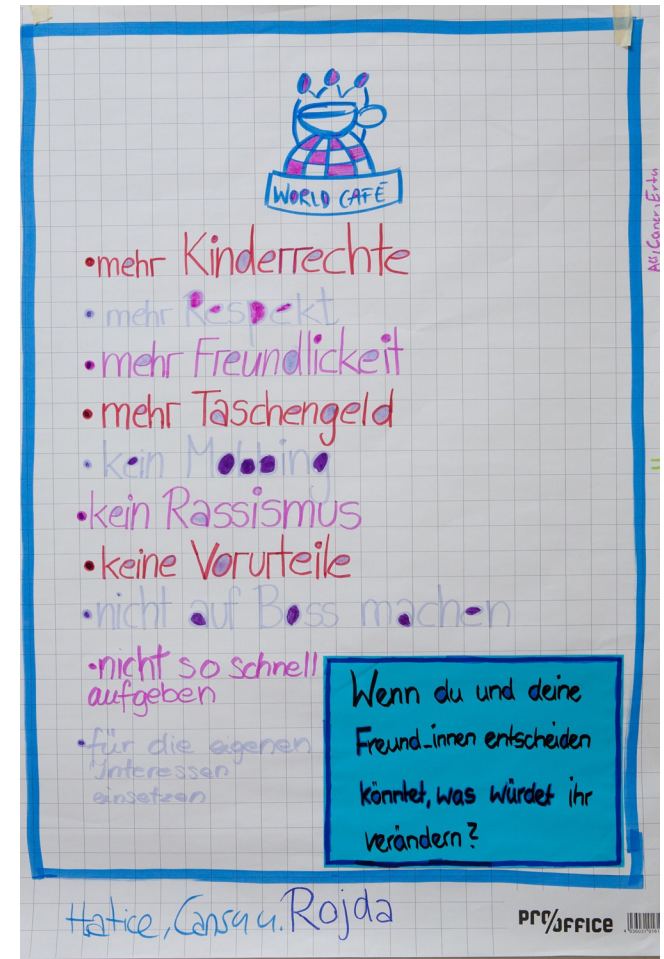 WORLD CAFÉ
•mehr Kinderrechte
•mehr Respekt
•mehr Freundlickeit
•mehr Taschengeld
•kein Mobbing
•kein Rassismus
•keine Vorurteile
•nicht auf Boss machen
•nicht so schnell
aufgeben
•für die eigenen
Interessen
einsetzen
Wenn du und deine
Freund_innen entscheiden
könntet, was würdet ihr
verändern?
Hatice, Cansu u. Rojda
PRO/OFFICE